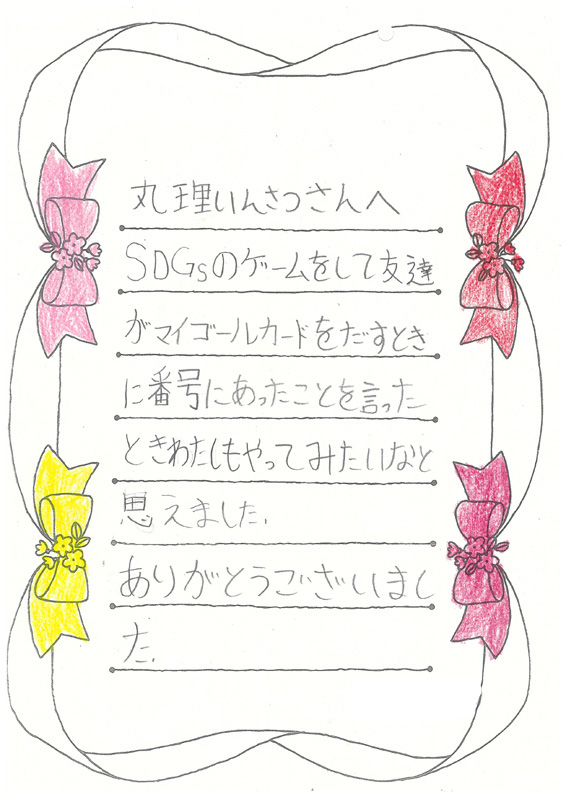 丸理いんさつさんへ
SDGsのゲームをして友達
がマイゴールカードをだすとき
に番号にあったことを言った
ときわたしもやってみたいなと
思えました.
ありがとうございまし
た.